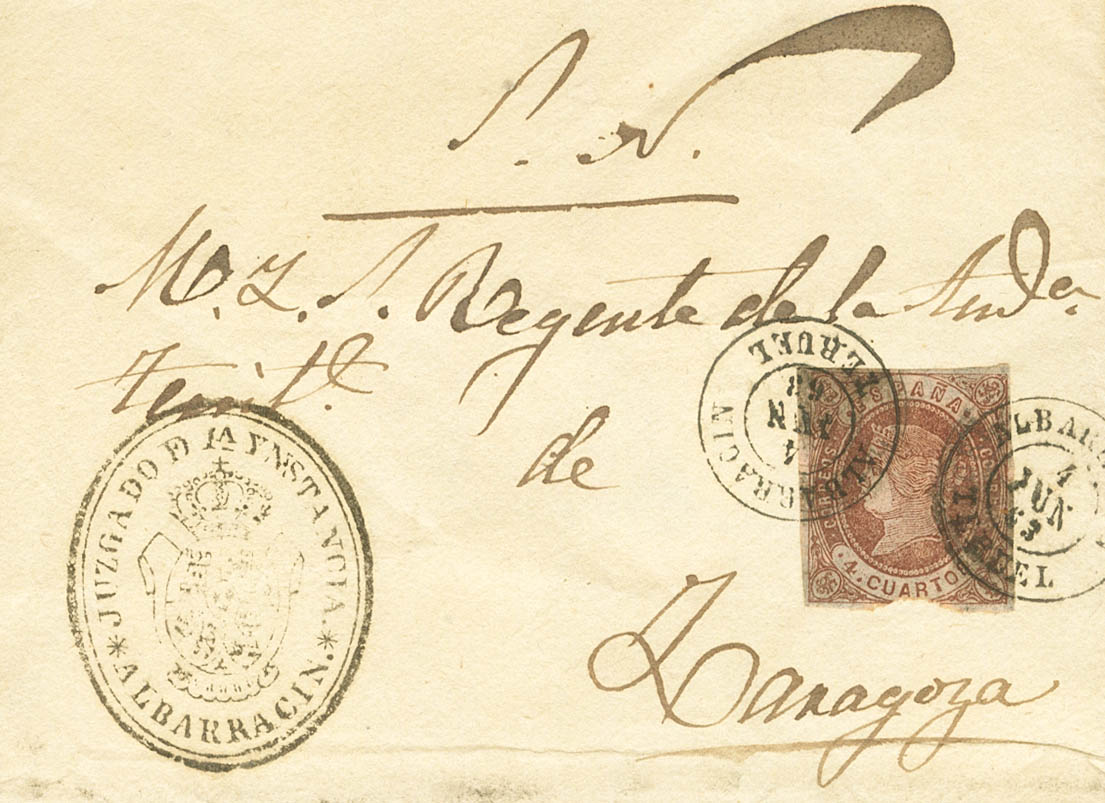 S. N.
M. I. S. Regente de la Aud.ª
territ.l
de
Zaragoza
JUZGADO D 1ª YNSTANCIA.
* ALBARRACIN. *
ALBARRACIN
4
JUN
63
TERUEL
ESPAÑA
CORREOS
4. CUARTO
ALBAR
4
JUN
63
TERUEL